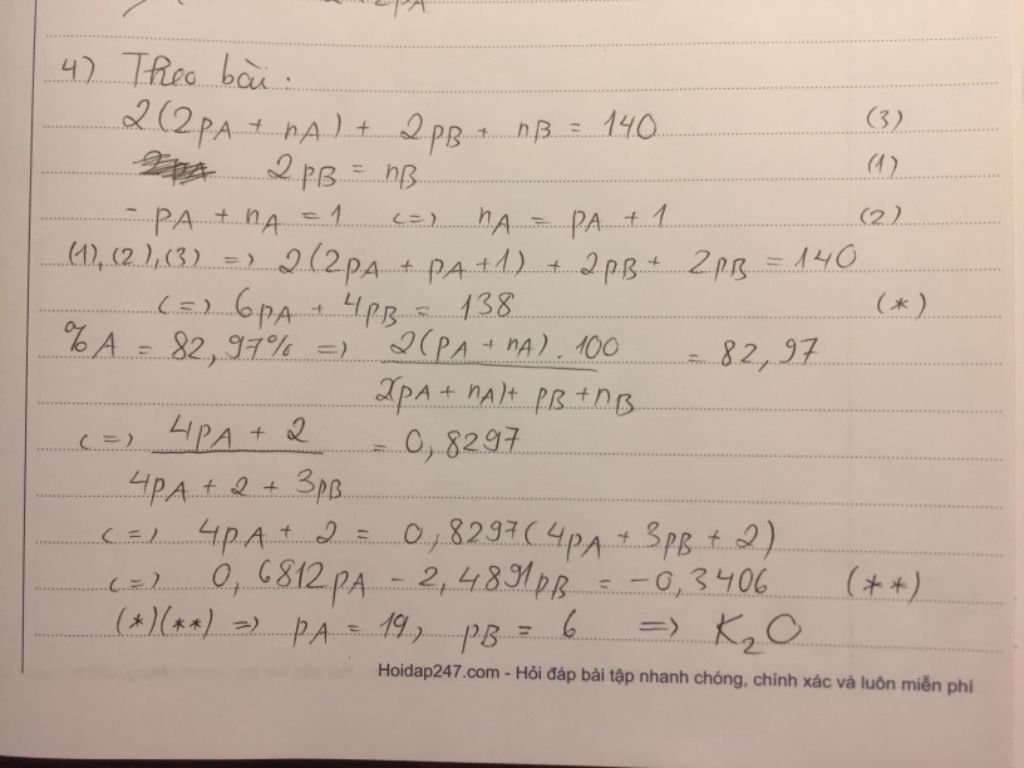 2pA
4) Theo bài:
2(2pA + nA) + 2pB + nB = 140 (3)
2pB = nB (1)
- pA + nA = 1 <=> nA = pA + 1 (2)
(1),(2),(3) => 2(2pA + pA + 1) + 2pB + 2pB = 140
<=> 6pA + 4pB = 138 (*)
%A = 82,97% => 2(pA + nA).100 = 82,97
2(pA + nA) + pB + nB
<=> 4pA + 2 = 0,8297
4pA + 2 + 3pB
<=> 4pA + 2 = 0,8297(4pA + 3pB + 2)
<=> 0,6812pA - 2,4891pB = -0,3406 (**)
(*)(**) => pA = 19, pB = 6 => K₂O
Hoidap247.com - Hỏi đáp bài tập nhanh chóng, chính xác và luôn miễn phí